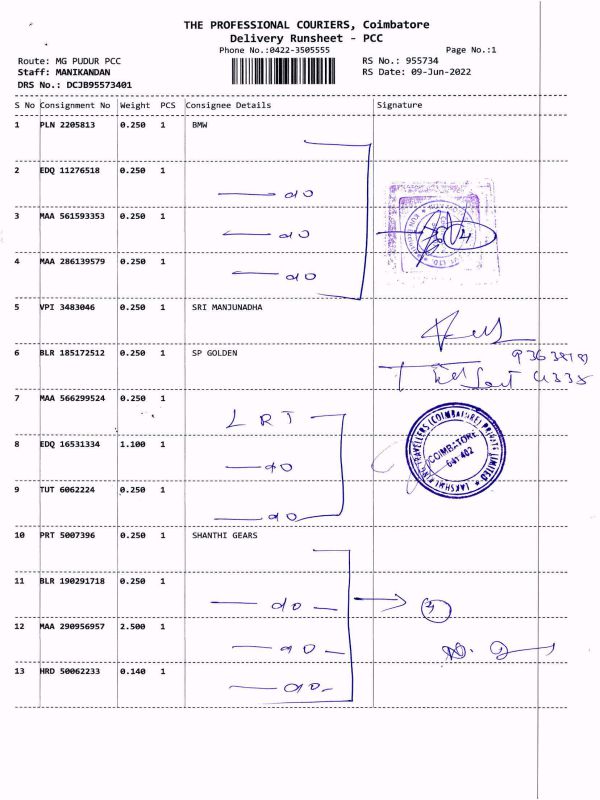 THE PROFESSIONAL COURIERS, Coimbatore
Delivery Runsheet - PCC
Phone No.:0422-3505555 Page No.:1
Route: MG PUDUR PCC RS No.: 955734
Staff: MANIKANDAN RS Date: 09-Jun-2022
DRS No.: DCJB95573401
S No Consignment No Weight PCS Consignee Details Signature
1 PLN 2205813 0.250 1 BMW
2 EDQ 11276518 0.250 1
do
3 MAA 561593353 0.250 1
do
4 MAA 286139579 0.250 1
do
5 VPI 3483046 0.250 1 SRI MANJUNADHA
6 BLR 185172512 0.250 1 SP GOLDEN
7 MAA 566299524 0.250 1
LRT
8 EDQ 16531334 1.100 1
do
9 TUT 6062224 0.250 1
do
LAKSHMI RING TRAVELLERS (COIMBATORE) PRIVATE LIMITED
COIMBATORE
641 402
10 PRT 5007396 0.250 1 SHANTHI GEARS
11 BLR 190291718 0.250 1
do
12 MAA 290956957 2.500 1
do
13 HRD 50062233 0.140 1
do